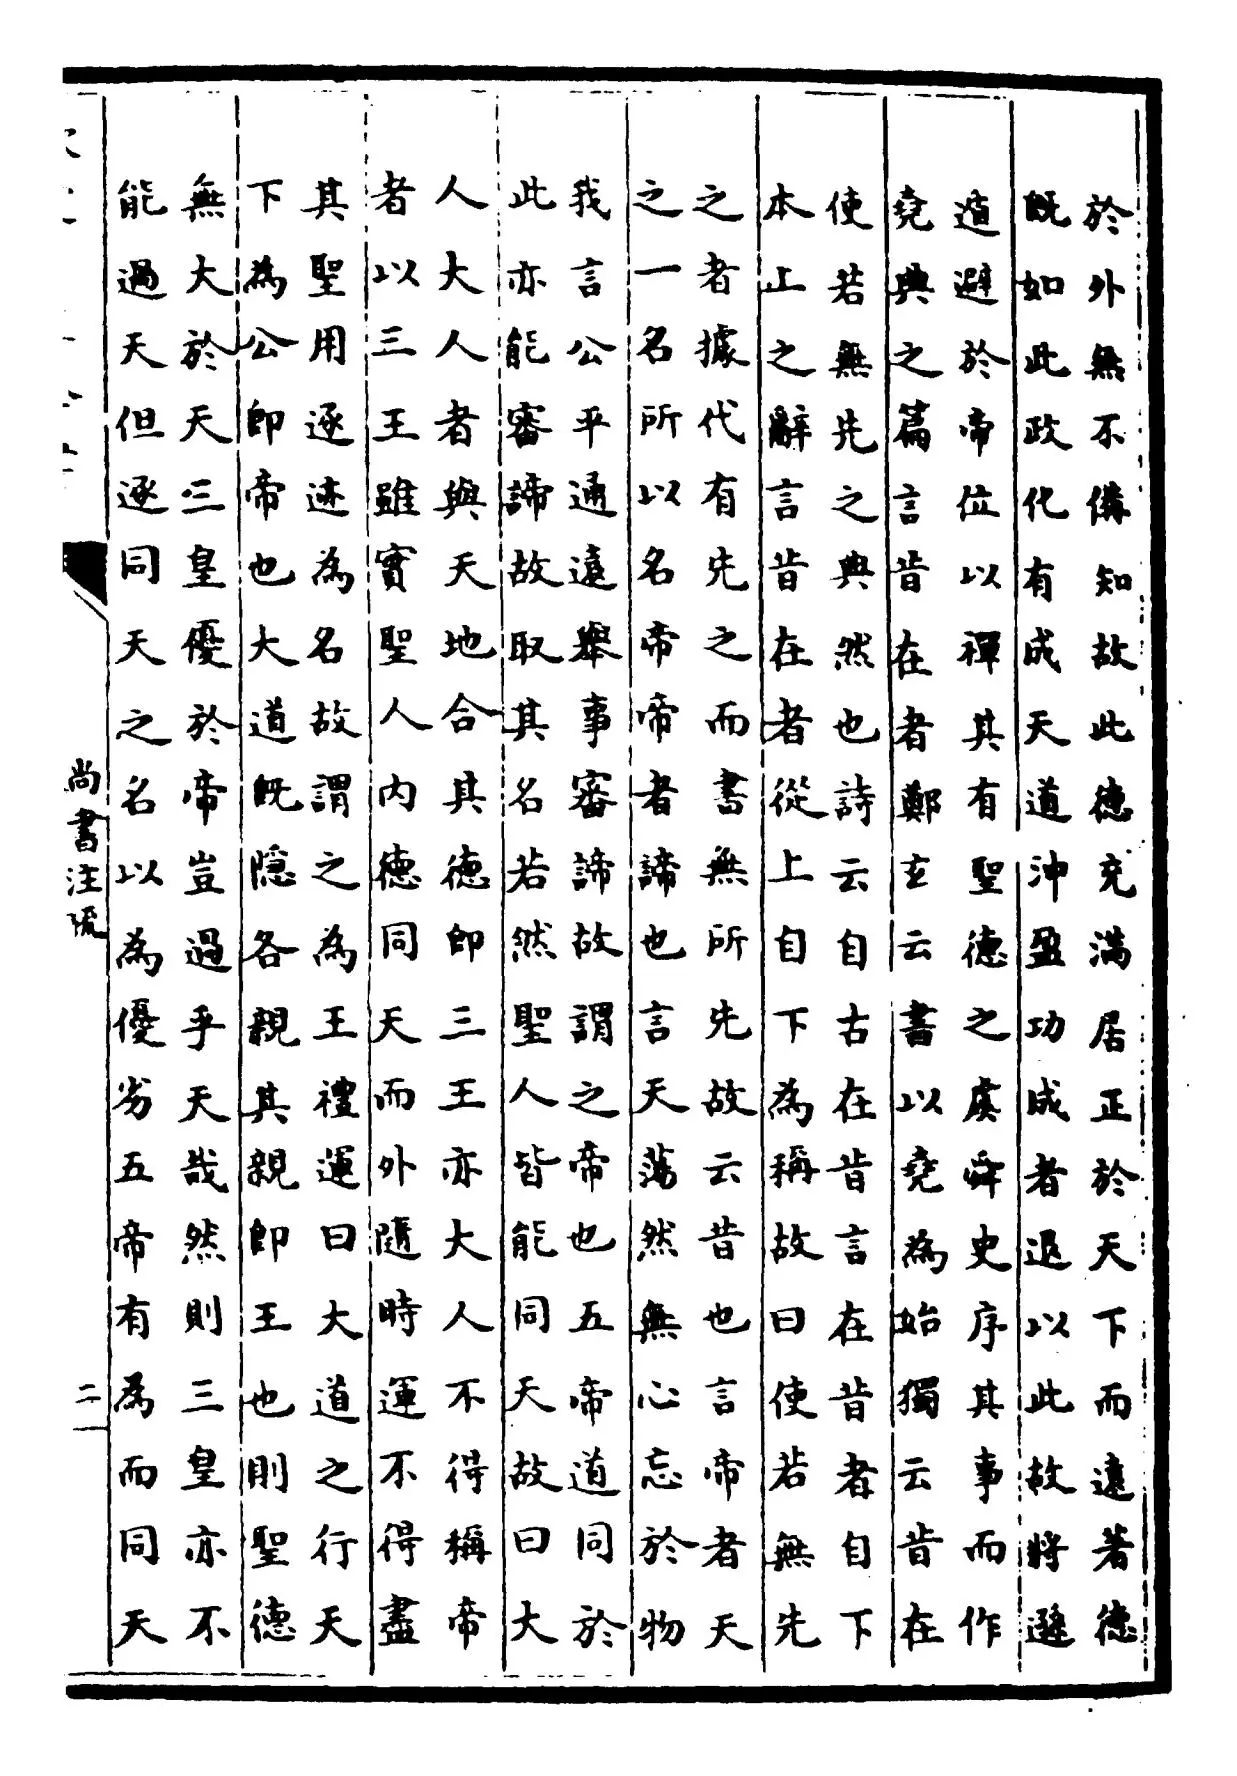 於外無不備知故此德充滿居正於天下而遠著德
既如此政化有成天道沖盈功成者退以此故將遜
遁避於帝位以禪其有聖德之虞舜史序其事而作
堯典之篇言昔在者鄭玄云書以堯為始獨云昔在
使若無先之典然也詩云自古在昔言在昔者自下
本上之辭言昔在者從上自下為稱故曰使若無先
之者據代有先之而書無所先故云昔也言帝者天
之一名所以名帝帝者諦也言天蕩然無心忘於物
我言公平通遠舉事審諦故謂之帝也五帝道同於
此亦能審諦故取其名若然聖人皆能同天故曰大
人大人者與天地合其德即三王亦大人不得稱帝
者以三王雖實聖人內德同天而外隨時運不得盡
其聖用逐迹為名故謂之為王禮運曰大道之行天
下為公即帝也大道既隱各親其親即王也則聖德
無大於天三皇優於帝豈過乎天哉然則三皇亦不
能過天但逐同天之名以為優劣五帝有為而同天
尚書注疏
二